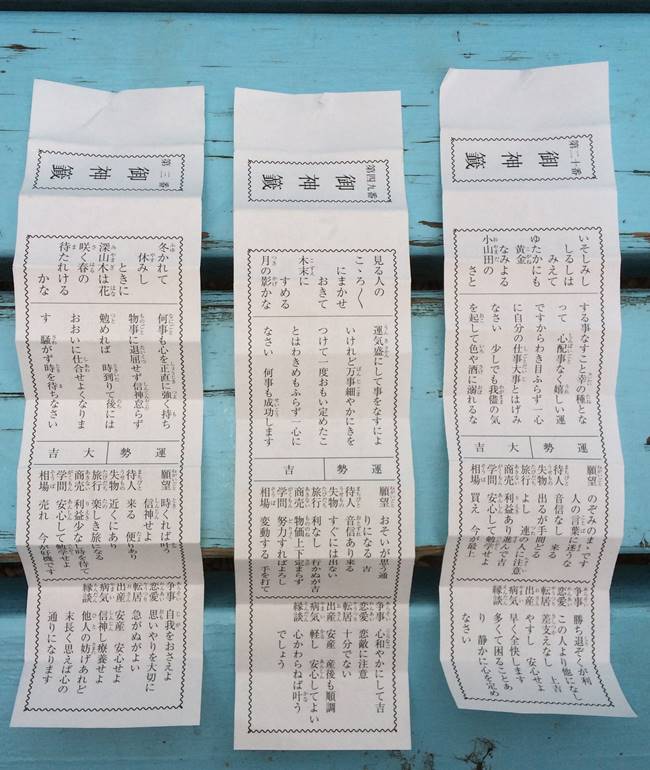 第三番
御神籤
冬かれて
休みし
ときに
深山木は花
咲く春の
待たれける
かな
何事も心を正直に強く持ち
物事に退屈せず信神怠らず
勉めれば 時到りて後には
おおいに仕合せよくなりま
す 騒がず時を待ちなさい
運勢 大吉
願望 時くれば叶う
信神せよ
待人 来る 便りあり
失物 近くにあり
旅行 楽しき旅になる
商売 利益少なし時を待て
学問 安心して勉学せよ
相場 売れ 今が好機です
争事 自我をおさえよ
恋愛 思いやりを大切に
転居 急がぬがよい
出産 安産 安心せよ
病気 信神し療養せよ
縁談 他人の妨げあれど
末長く思えば心の
通りになります
第四九番
御神籤
見る人の
こゝろ〳〵
にまかせ
おきて
木末に
すめる
月の影かな
運気盛にして事をなすによ
いけれど万事細やかにきを
つけて一度おもい定めたこ
とはわきめもふらず一心に
なさい 何事も成功します
運勢 吉
願望 おそいが思う通
りになる 吉
待人 音信あり来る
失物 すぐには出ない
旅行 利なし 行かぬが吉
商売 物価上下定まらず
学問 努力すればよろし
相場 変動する 手を打て
争事 心和やかにして吉
恋愛 恋敵に注意
転居 十分でない
出産 安産 産後も順調
病気 軽し 安心してよい
縁談 心かわらねば叶う
でしょう
第二十番
御神籤
いそしみし
しるしは
みえて
ゆたかにも
黄金
なみよる
小山田の
さと
する事なすこと幸の種とな
って 心配事なく嬉しい運
ですからわき目ふらず一心
に自分の仕事大事とはげみ
なさい 少しでも我儘の気
を起して色や酒に溺れるな
運勢 大吉
願望 のぞみのままです
人の言葉に迷うな
待人 音信なし 来る
失物 出るが手間どる
旅行 よし 連の人に注意
商売 利益あり 進んで吉
学問 安心して勉学せよ
相場 買え 今が最上
争事 勝ち退ぞくが利
恋愛 この人より他になし
転居 差支えなし 上吉
出産 やすし 安心せよ
病気 早く全快します
縁談 多くて困ることあ
り 静かに心を定め
なさい